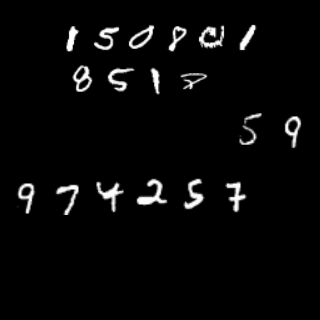 150801
8518
59
974257